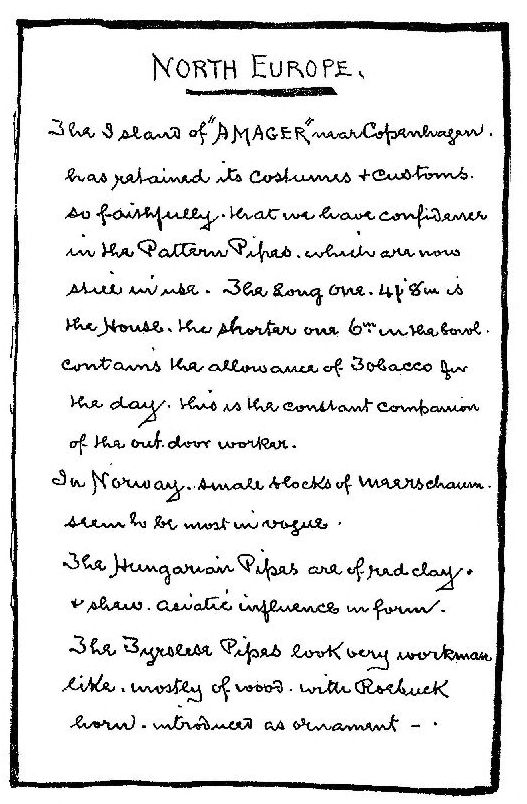 NORTH EUROPE.
The Island of "AMAGER," near Copenhagen.
has retained its costumes + customs.
so faithfully. that we have confidence
in the Pattern Pipes. which are now
still in use. The Long One. 4ft 8in is
the House. the shorter one 6in in the bowl.
contains the allowance of Tobacco for
the day. this is the constant companion
of the out door worker.
In Norway. small blocks of Meerschaum.
seem to be most in vogue.
The Hungarian Pipes are of red clay.
+ shew. asiatic influence in form.
The Tyrolese Pipes look very workman
like. mostly of wood. with Roebuck
horn. introduced as ornament - .